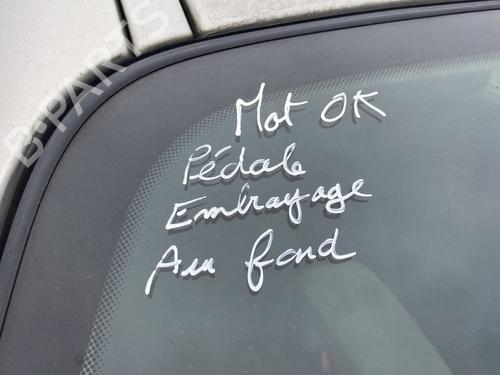 B-PARTS
Mot OK
Pédale
Embrayage
Au fond